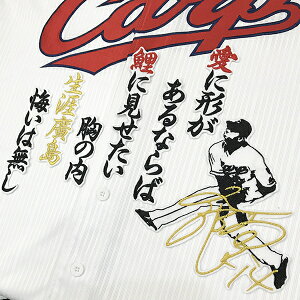 Carp
愛に形が
あるならば
鯉に見せたい
胸の内
生涯廣島
悔いは無し